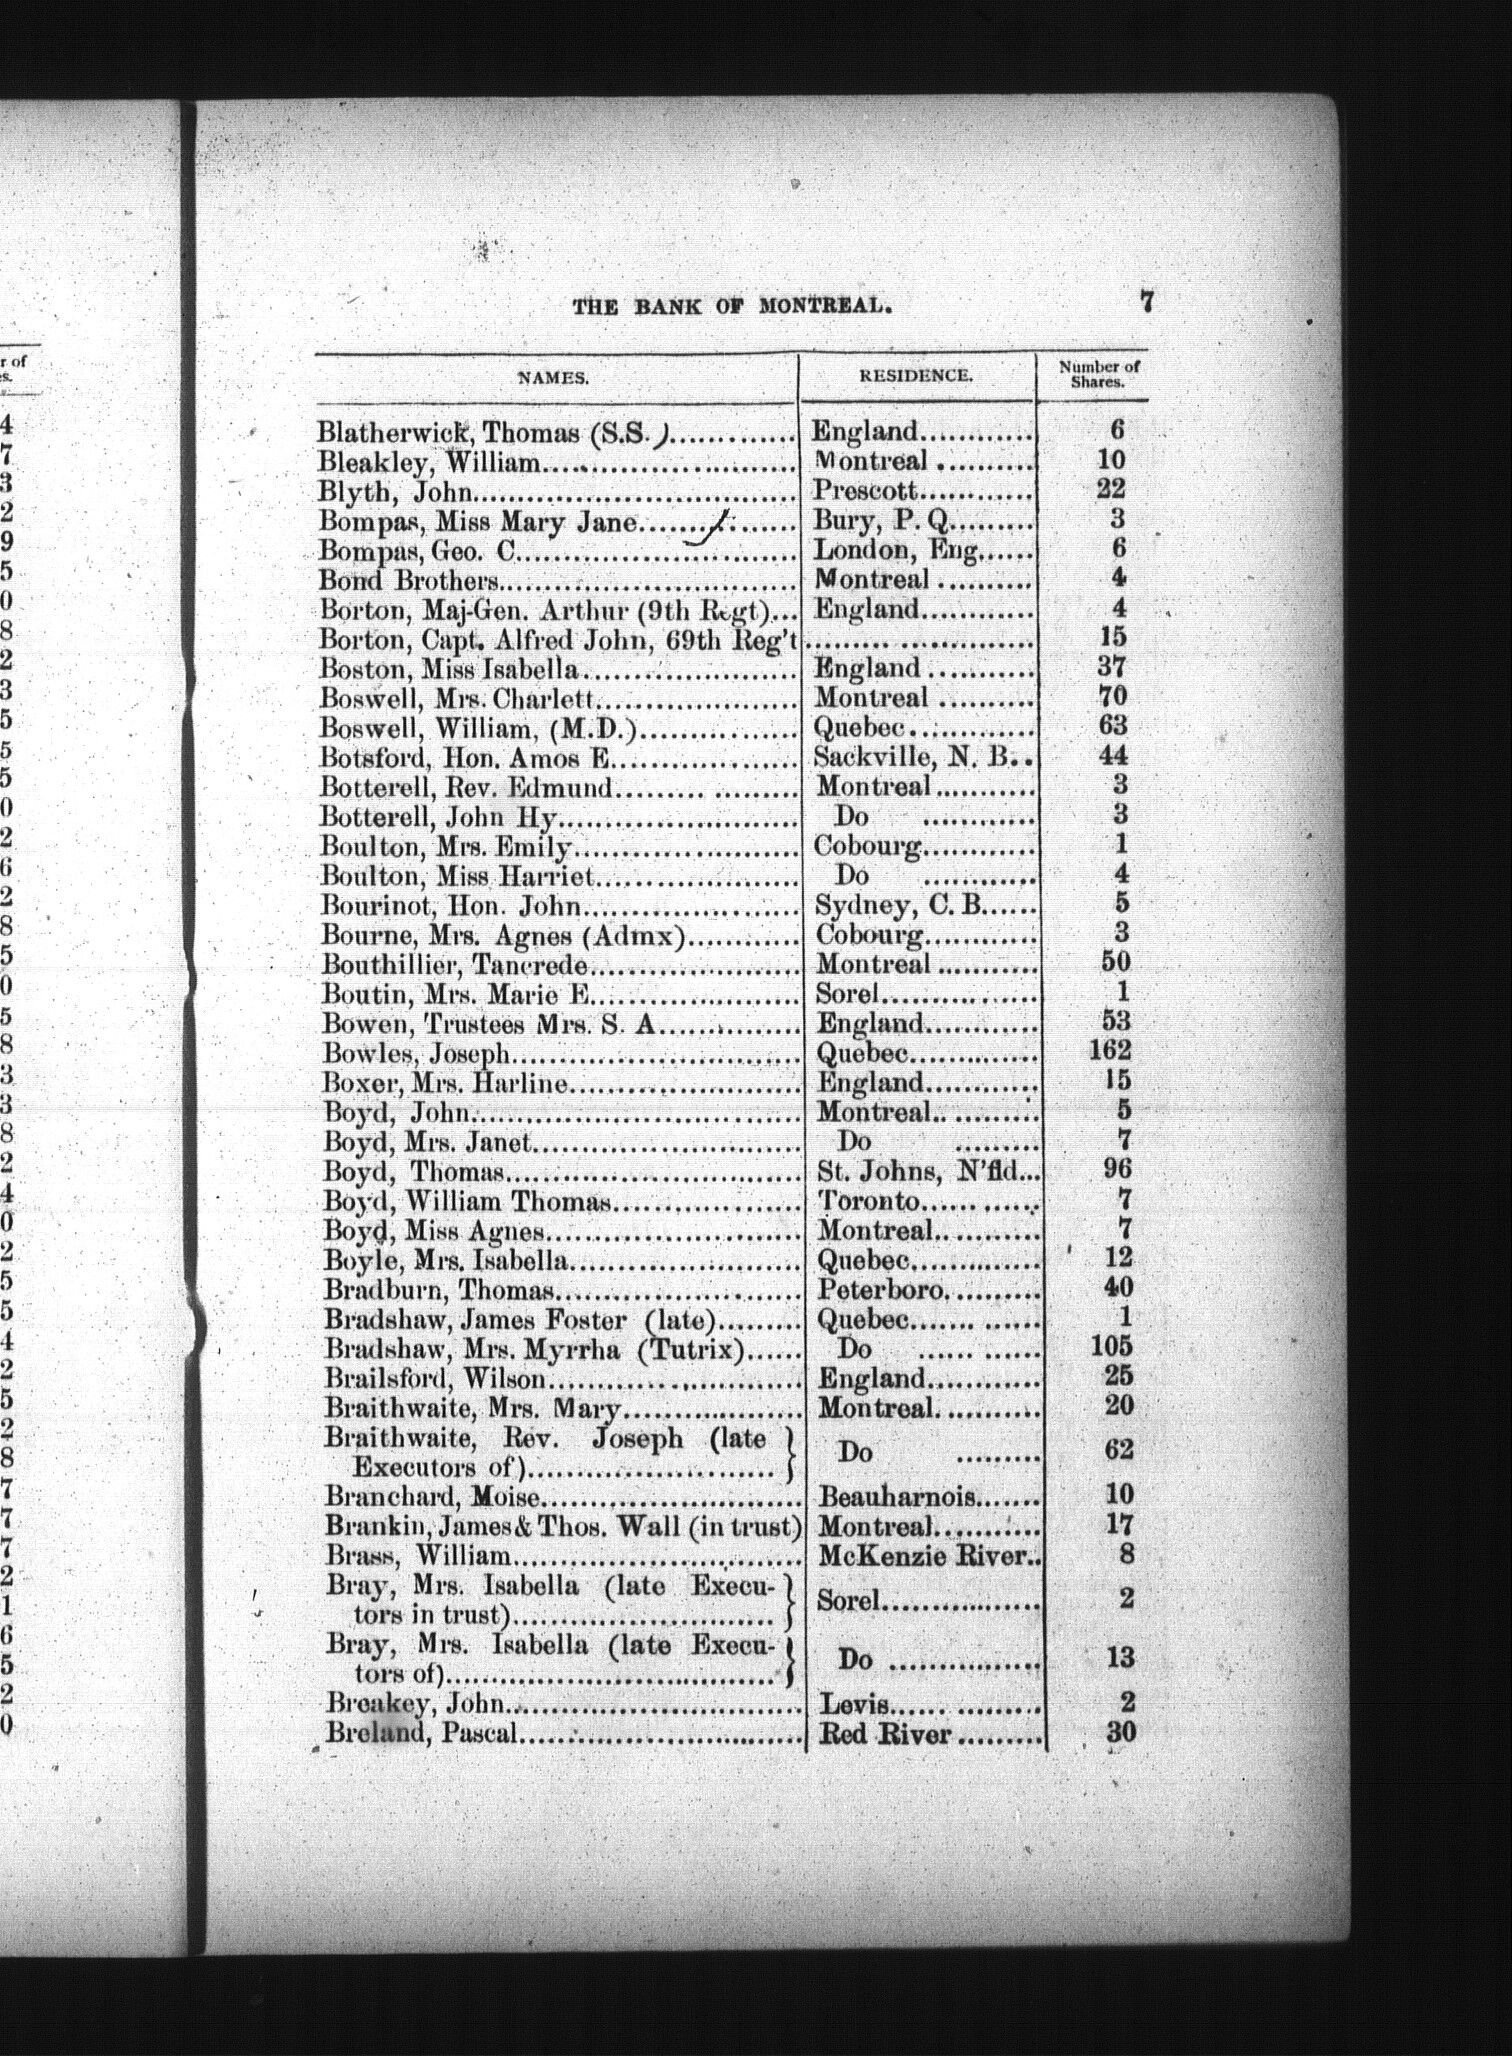 THE BANK OF MONTREAL. 7
NAMES. RESIDENCE. Number of Shares.
Blatherwick, Thomas (S.S.)............. England............ 6
Bleakley, William.......................... Montreal .......... 10
Blyth, John................................. Prescott............ 22
Bompas, Miss Mary Jane................ Bury, P. Q......... 3
Bompas, Geo. C............................. London, Eng...... 6
Bond Brothers.............................. Montreal .......... 4
Borton, Maj-Gen. Arthur (9th Regt)... England............ 4
Borton, Capt. Alfred John, 69th Reg't ........................ 15
Boston, Miss Isabella...................... England ........... 37
Boswell, Mrs. Charlett..................... Montreal .......... 70
Boswell, William, (M.D.)................ Quebec............. 63
Botsford, Hon. Amos E................... Sackville, N. B.. 44
Botterell, Rev. Edmund......... ......... Montreal........... 3
Botterell, John Hy......................... Do ............ 3
Boulton, Mrs. Emily....................... Cobourg............ 1
Boulton, Miss Harriet..................... Do ............ 4
Bourinot, Hon. John...................... Sydney, C. B...... 5
Bourne, Mrs. Agnes (Admx)............ Cobourg............ 3
Bouthillier, Tancrede..................... Montreal ........... 50
Boutin, Mrs. Marie E...................... Sorel................ 1
Bowen, Trustees Mrs. S. A............... England............ 53
Bowles, Joseph............................. Quebec............. 162
Boxer, Mrs. Harline........................ England............ 15
Boyd, John.................................. Montreal.. ......... 5
Boyd, Mrs. Janet........................... Do ......... 7
Boyd, Thomas.............................. St. Johns, N'fld... 96
Boyd, William Thomas................... Toronto...... ...... 7
Boyd, Miss Agnes.......................... Montreal.. ......... 7
Boyle, Mrs. Isabella........................ Quebec............. 12
Bradburn, Thomas......................... Peterboro. ......... 40
Bradshaw, James Foster (late)......... Quebec....... ...... 1
Bradshaw, Mrs. Myrrha (Tutrix)...... Do ...... ...... 105
Brailsford, Wilson.......................... England............ 25
Braithwaite, Mrs. Mary................... Montreal. .......... 20
Braithwaite, Rev. Joseph (late
Executors of)......................... Do ......... 62
Branchard, Moise........................... Beauharnois....... 10
Brankin, James & Thos. Wall (in trust) Montreal........... 17
Brass, William.............................. McKenzie River.. 8
Bray, Mrs. Isabella (late Execu-
tors in trust)........................... Sorel................ 2
Bray, Mrs. Isabella (late Execu-
tors of).................................. Do ................ 13
Breakey, John.............................. Levis...... ......... 2
Breland, Pascal............................. Red River ......... 30
r of
s.
4
7
3
2
9
5
0
8
2
3
5
5
5
0
2
6
2
8
5
0
5
8
3
3
8
2
4
0
2
5
5
4
2
5
2
8
7
7
7
2
1
6
5
2
0